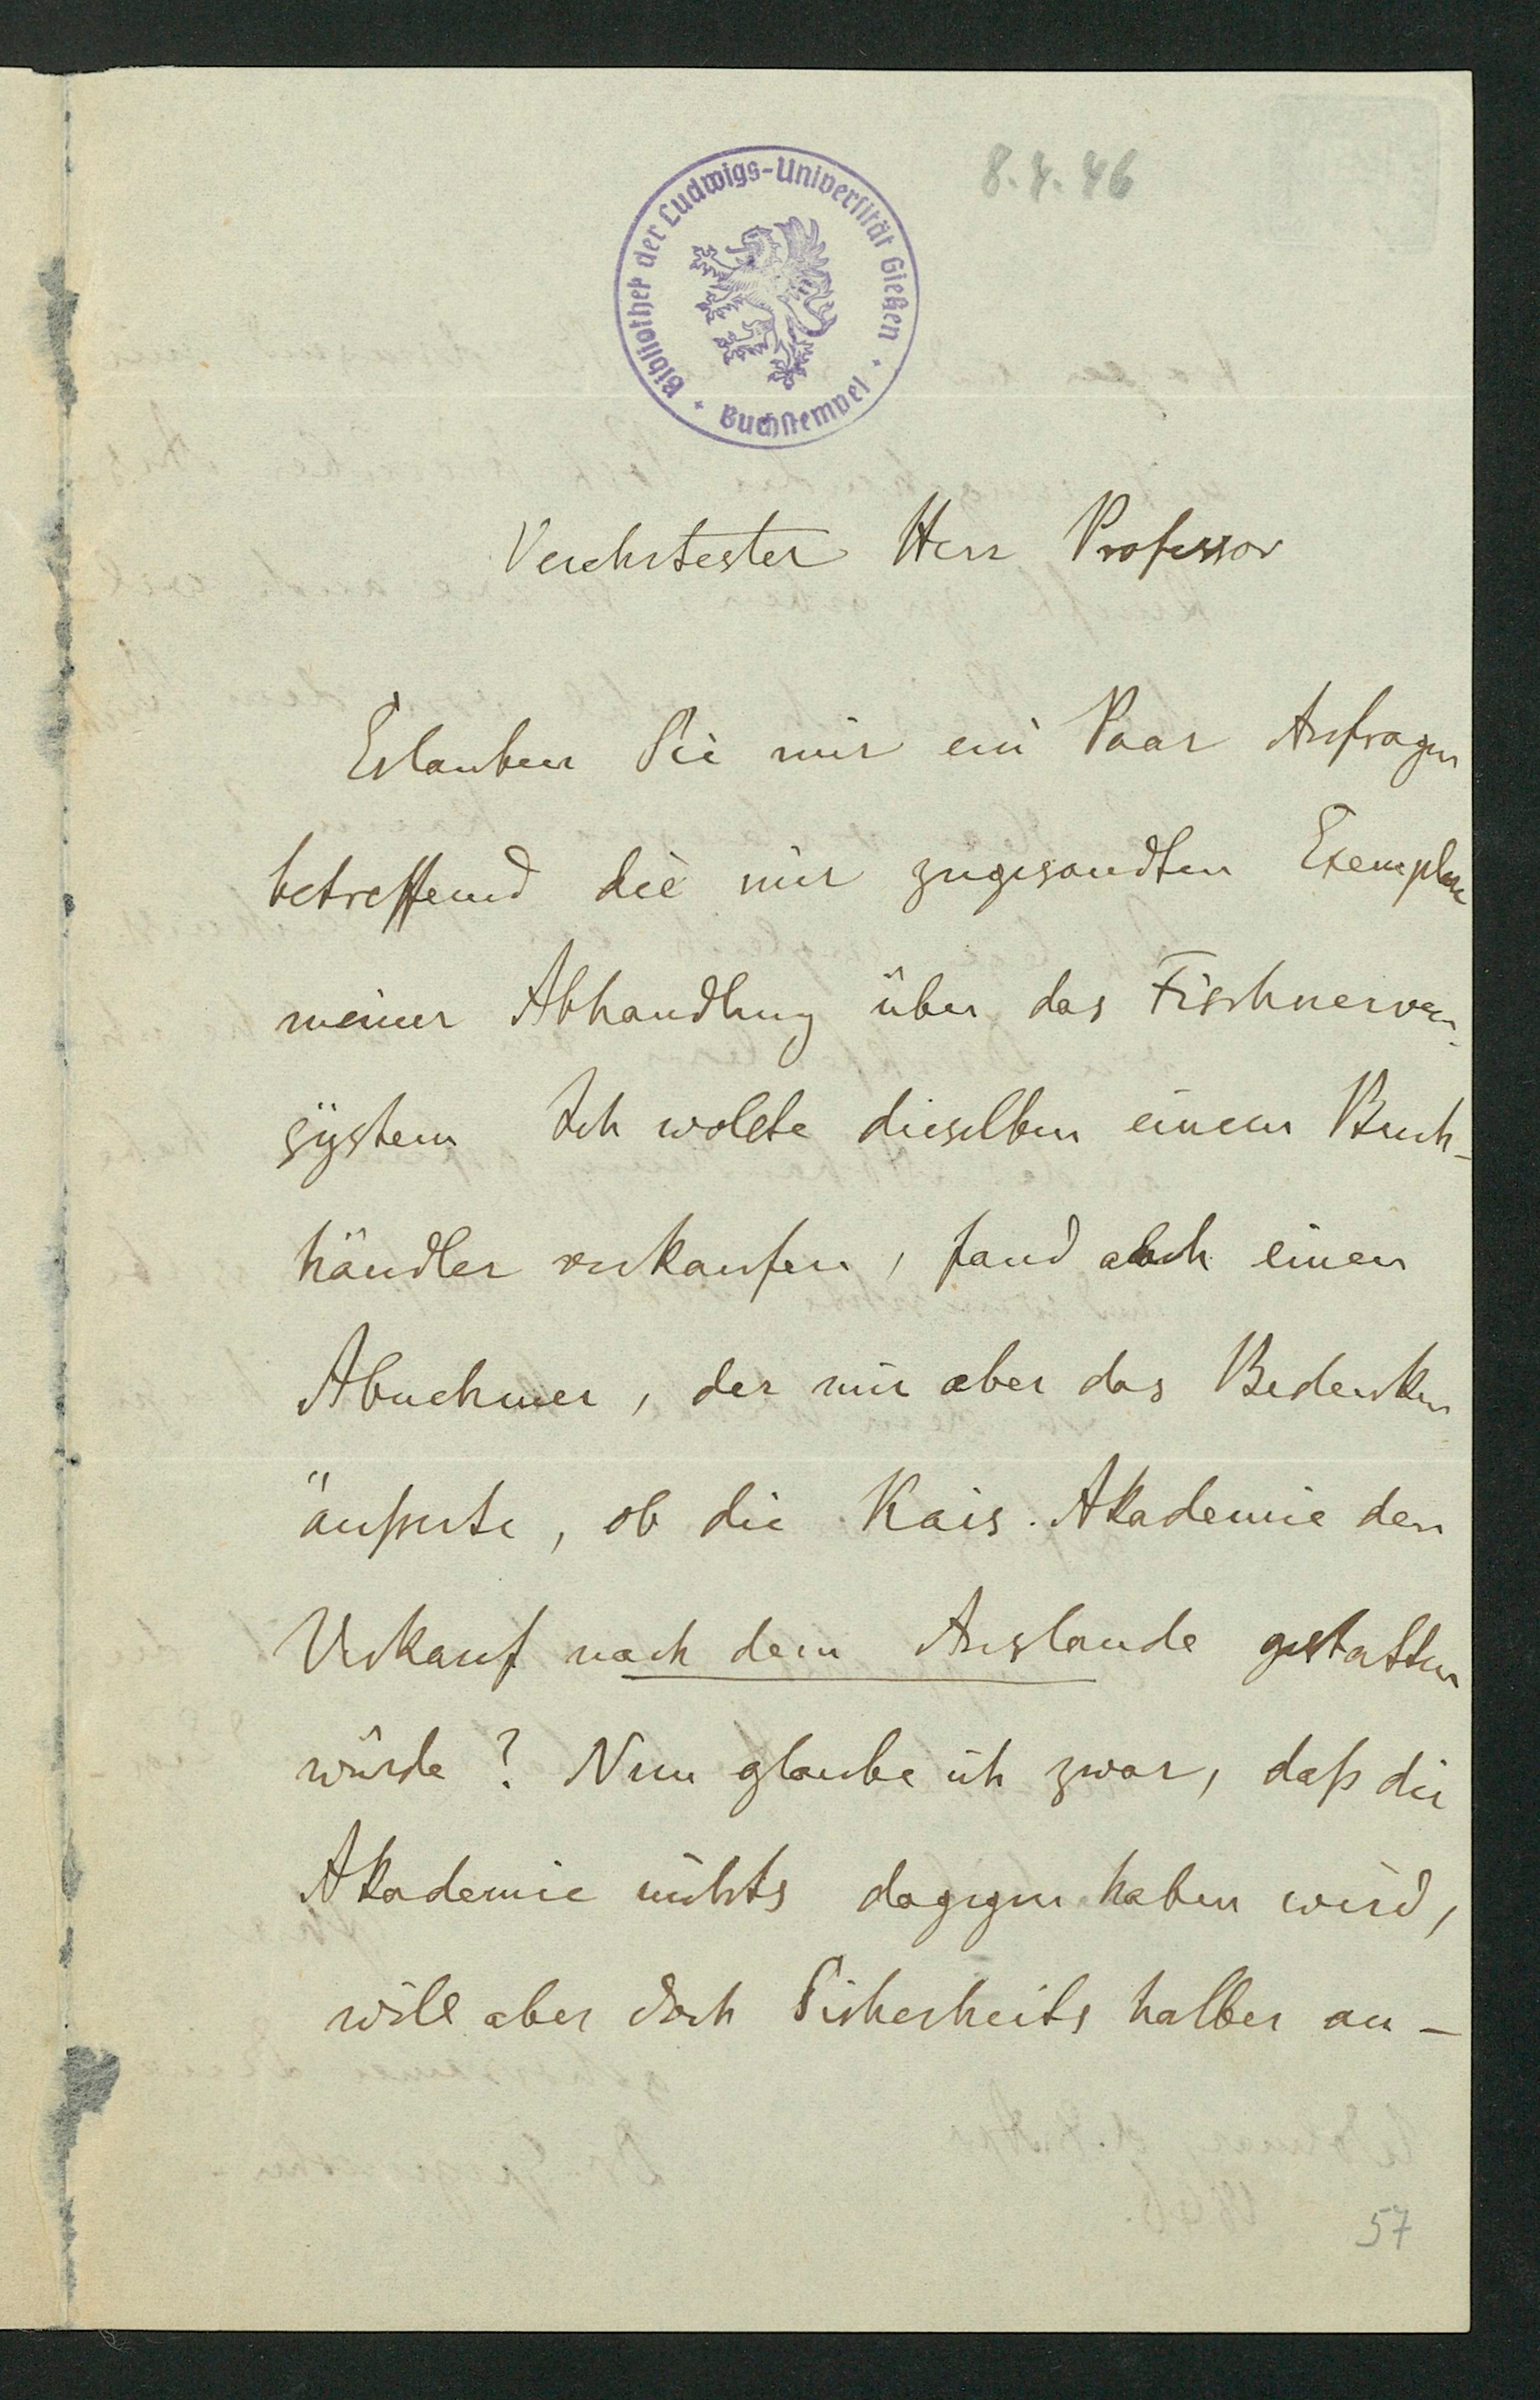 8.4.46
Bibliothek der Ludwigs-Universität Gießen
Buchstempel
Verehrtester Herr Professor
Erlauben Sie mir ein Paar Anfragen
betreffend die mir zugesandten Exemplare
meiner Abhandlung über das Fischnerven-
system Ich wollte dieselben einem Buch-
händler verkaufen, fand auch einen
Abnehmer, der mir aber das Bedenken
äußerte, ob die Kais. Akademie den
Verkauf nach dem Auslande gestatten
würde? Nun glaube ich zwar, daß die
Akademie nichts dagegen haben wird,
will aber doch Sicherheits halber an-
57